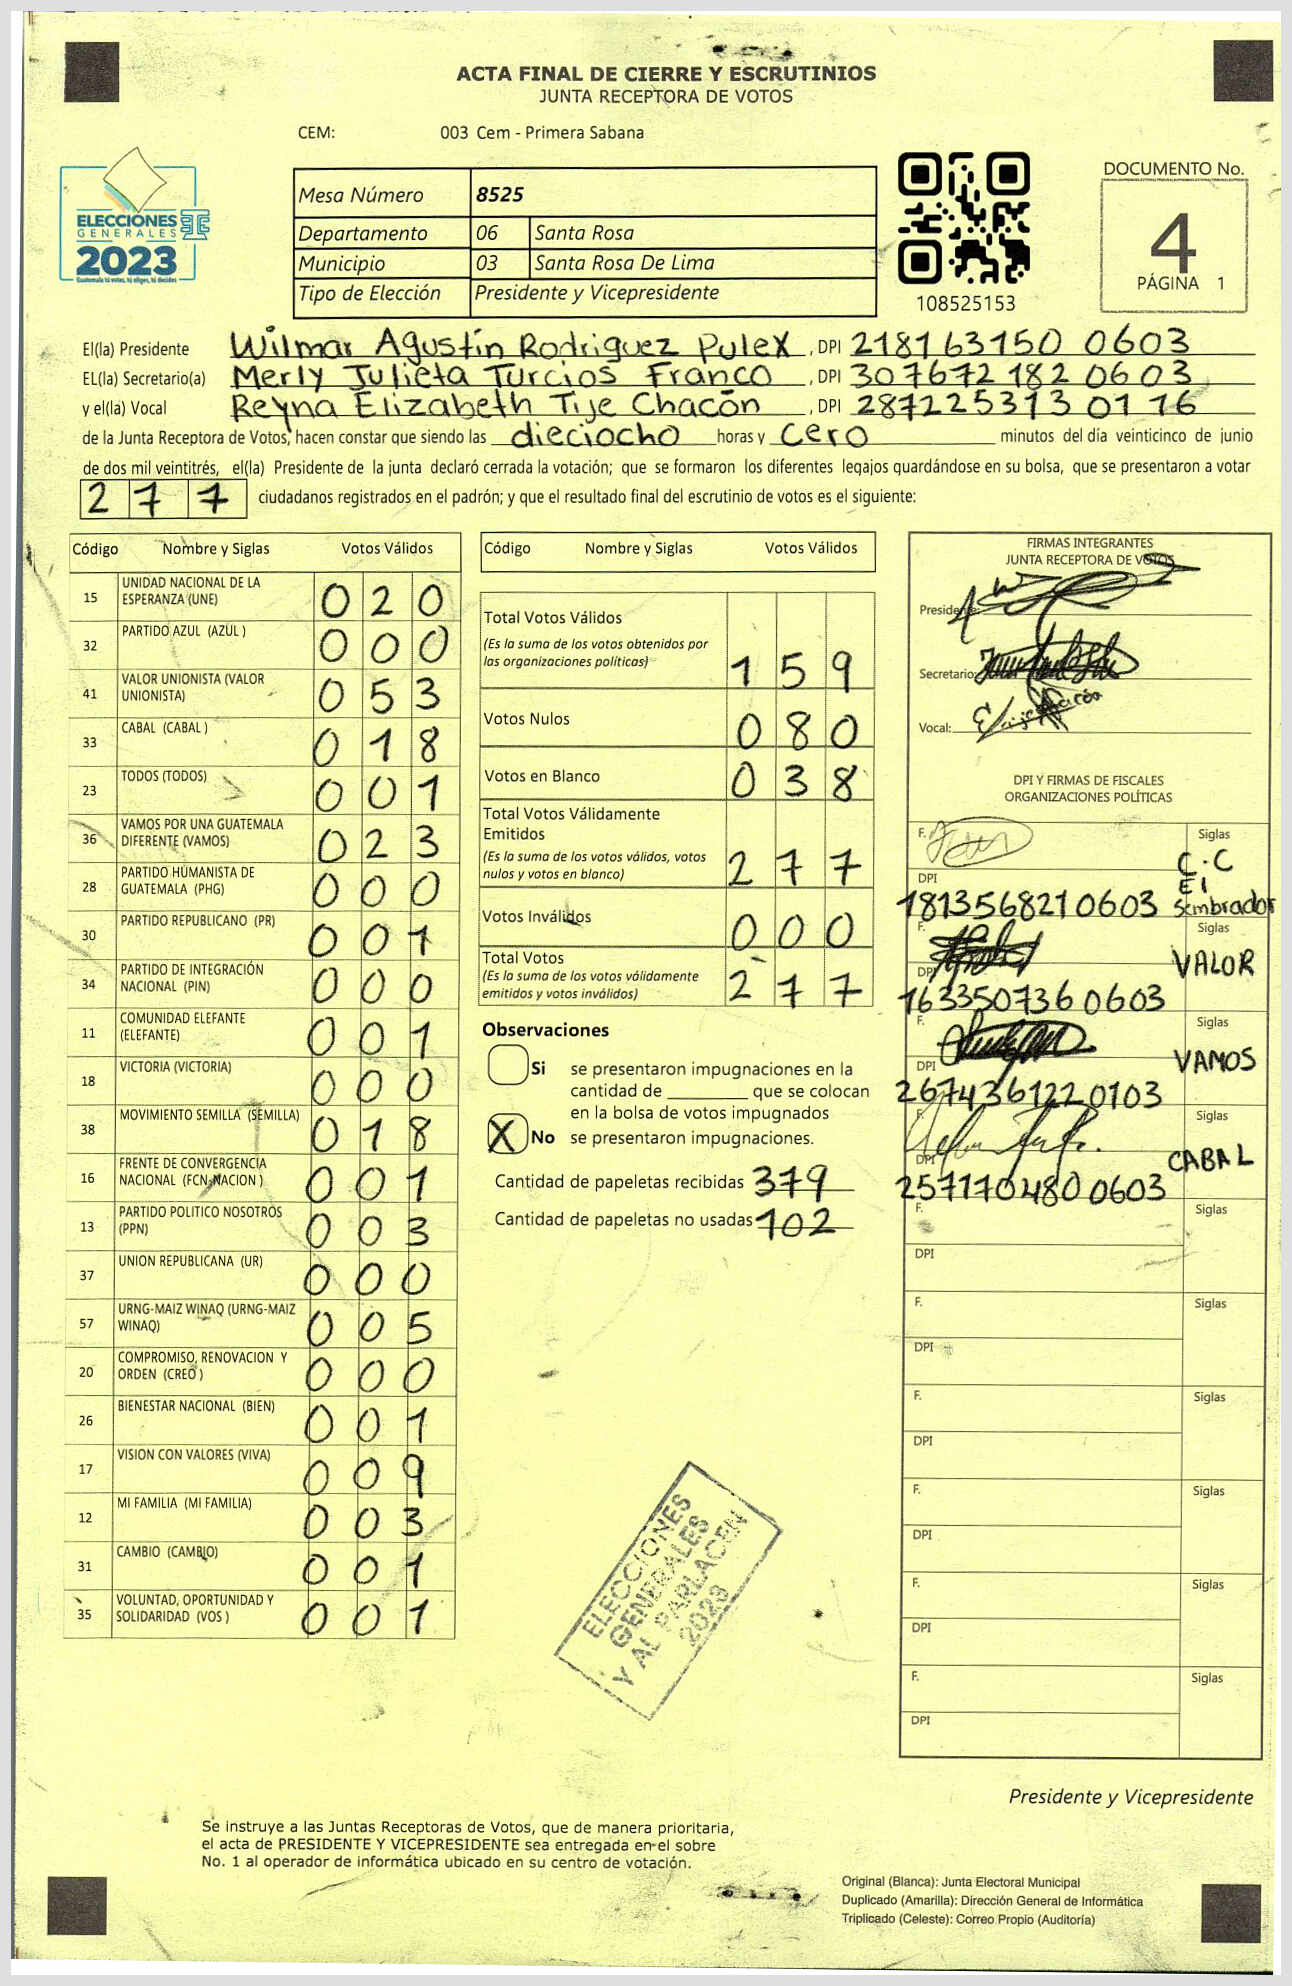 ACTA FINAL DE CIERRE Y ESCRUTINIOS
JUNTA RECEPTORA DE VOTOS
CEM: 003 Cem - Primera Sabana
ELECCIONES
GENERALES
2023
Guatemala tú votas, tú eliges, tú decides
Mesa Número 8525
Departamento 06 Santa Rosa
Municipio 03 Santa Rosa De Lima
Tipo de Elección Presidente y Vicepresidente
108525153
DOCUMENTO No.
4
PÁGINA 1
El(la) Presidente Wilmar Agustín Rodriguez Pulex , DPI 218163150 0603
EL(la) Secretario(a) Merly Julieta Turcios Franco , DPI 307672182 0603
y el(la) Vocal Reyna Elizabeth Tije Chacón , DPI 287225313 0116
de la Junta Receptora de Votos, hacen constar que siendo las dieciocho horas y cero minutos del día veinticinco de junio
de dos mil veintitrés, el(la) Presidente de la junta declaró cerrada la votación; que se formaron los diferentes legajos guardándose en su bolsa, que se presentaron a votar
277 ciudadanos registrados en el padrón; y que el resultado final del escrutinio de votos es el siguiente:
Código Nombre y Siglas Votos Válidos
15 UNIDAD NACIONAL DE LA ESPERANZA (UNE) 020
32 PARTIDO AZUL (AZUL ) 000
41 VALOR UNIONISTA (VALOR UNIONISTA) 053
33 CABAL (CABAL ) 018
23 TODOS (TODOS) 001
36 VAMOS POR UNA GUATEMALA DIFERENTE (VAMOS) 023
28 PARTIDO HUMANISTA DE GUATEMALA (PHG) 000
30 PARTIDO REPUBLICANO (PR) 001
34 PARTIDO DE INTEGRACIÓN NACIONAL (PIN) 000
11 COMUNIDAD ELEFANTE (ELEFANTE) 001
18 VICTORIA (VICTORIA) 000
38 MOVIMIENTO SEMILLA (SEMILLA) 018
16 FRENTE DE CONVERGENCIA NACIONAL (FCN-NACION ) 001
13 PARTIDO POLITICO NOSOTROS (PPN) 003
37 UNION REPUBLICANA (UR) 000
57 URNG-MAIZ WINAQ (URNG-MAIZ WINAQ) 005
20 COMPROMISO, RENOVACION Y ORDEN (CREO ) 000
26 BIENESTAR NACIONAL (BIEN) 001
17 VISION CON VALORES (VIVA) 009
12 MI FAMILIA (MI FAMILIA) 003
31 CAMBIO (CAMBIO) 001
35 VOLUNTAD, OPORTUNIDAD Y SOLIDARIDAD (VOS ) 001
Código Nombre y Siglas Votos Válidos
Total Votos Válidos
(Es la suma de los votos obtenidos por
las organizaciones políticas) 159
Votos Nulos 080
Votos en Blanco 038
Total Votos Válidamente
Emitidos
(Es la suma de los votos válidos, votos
nulos y votos en blanco) 277
Votos Inválidos 000
Total Votos
(Es la suma de los votos válidamente
emitidos y votos inválidos) 277
Observaciones
Si se presentaron impugnaciones en la
cantidad de ________ que se colocan
en la bolsa de votos impugnados
X No se presentaron impugnaciones.
Cantidad de papeletas recibidas 379
Cantidad de papeletas no usadas 102
ELECCIONES
GENERALES
Y AL PARLACEN
2023
FIRMAS INTEGRANTES
JUNTA RECEPTORA DE VOTOS
Presidente:
Secretario:
Vocal:
DPI Y FIRMAS DE FISCALES
ORGANIZACIONES POLÍTICAS
F. Siglas
C.C
El
Sembrador
DPI
1813568210603
F. Siglas
VALOR
DPI
163350736 0603
F. Siglas
VAMOS
DPI
267436122 0103
F. Siglas
CABAL
DPI
257170480 0603
F. Siglas
DPI
F. Siglas
DPI
F. Siglas
DPI
F. Siglas
DPI
F. Siglas
DPI
F. Siglas
DPI
Presidente y Vicepresidente
Se instruye a las Juntas Receptoras de Votos, que de manera prioritaria,
el acta de PRESIDENTE Y VICEPRESIDENTE sea entregada en el sobre
No. 1 al operador de informática ubicado en su centro de votación.
Original (Blanca): Junta Electoral Municipal
Duplicado (Amarilla): Dirección General de Informática
Triplicado (Celeste): Correo Propio (Auditoría)